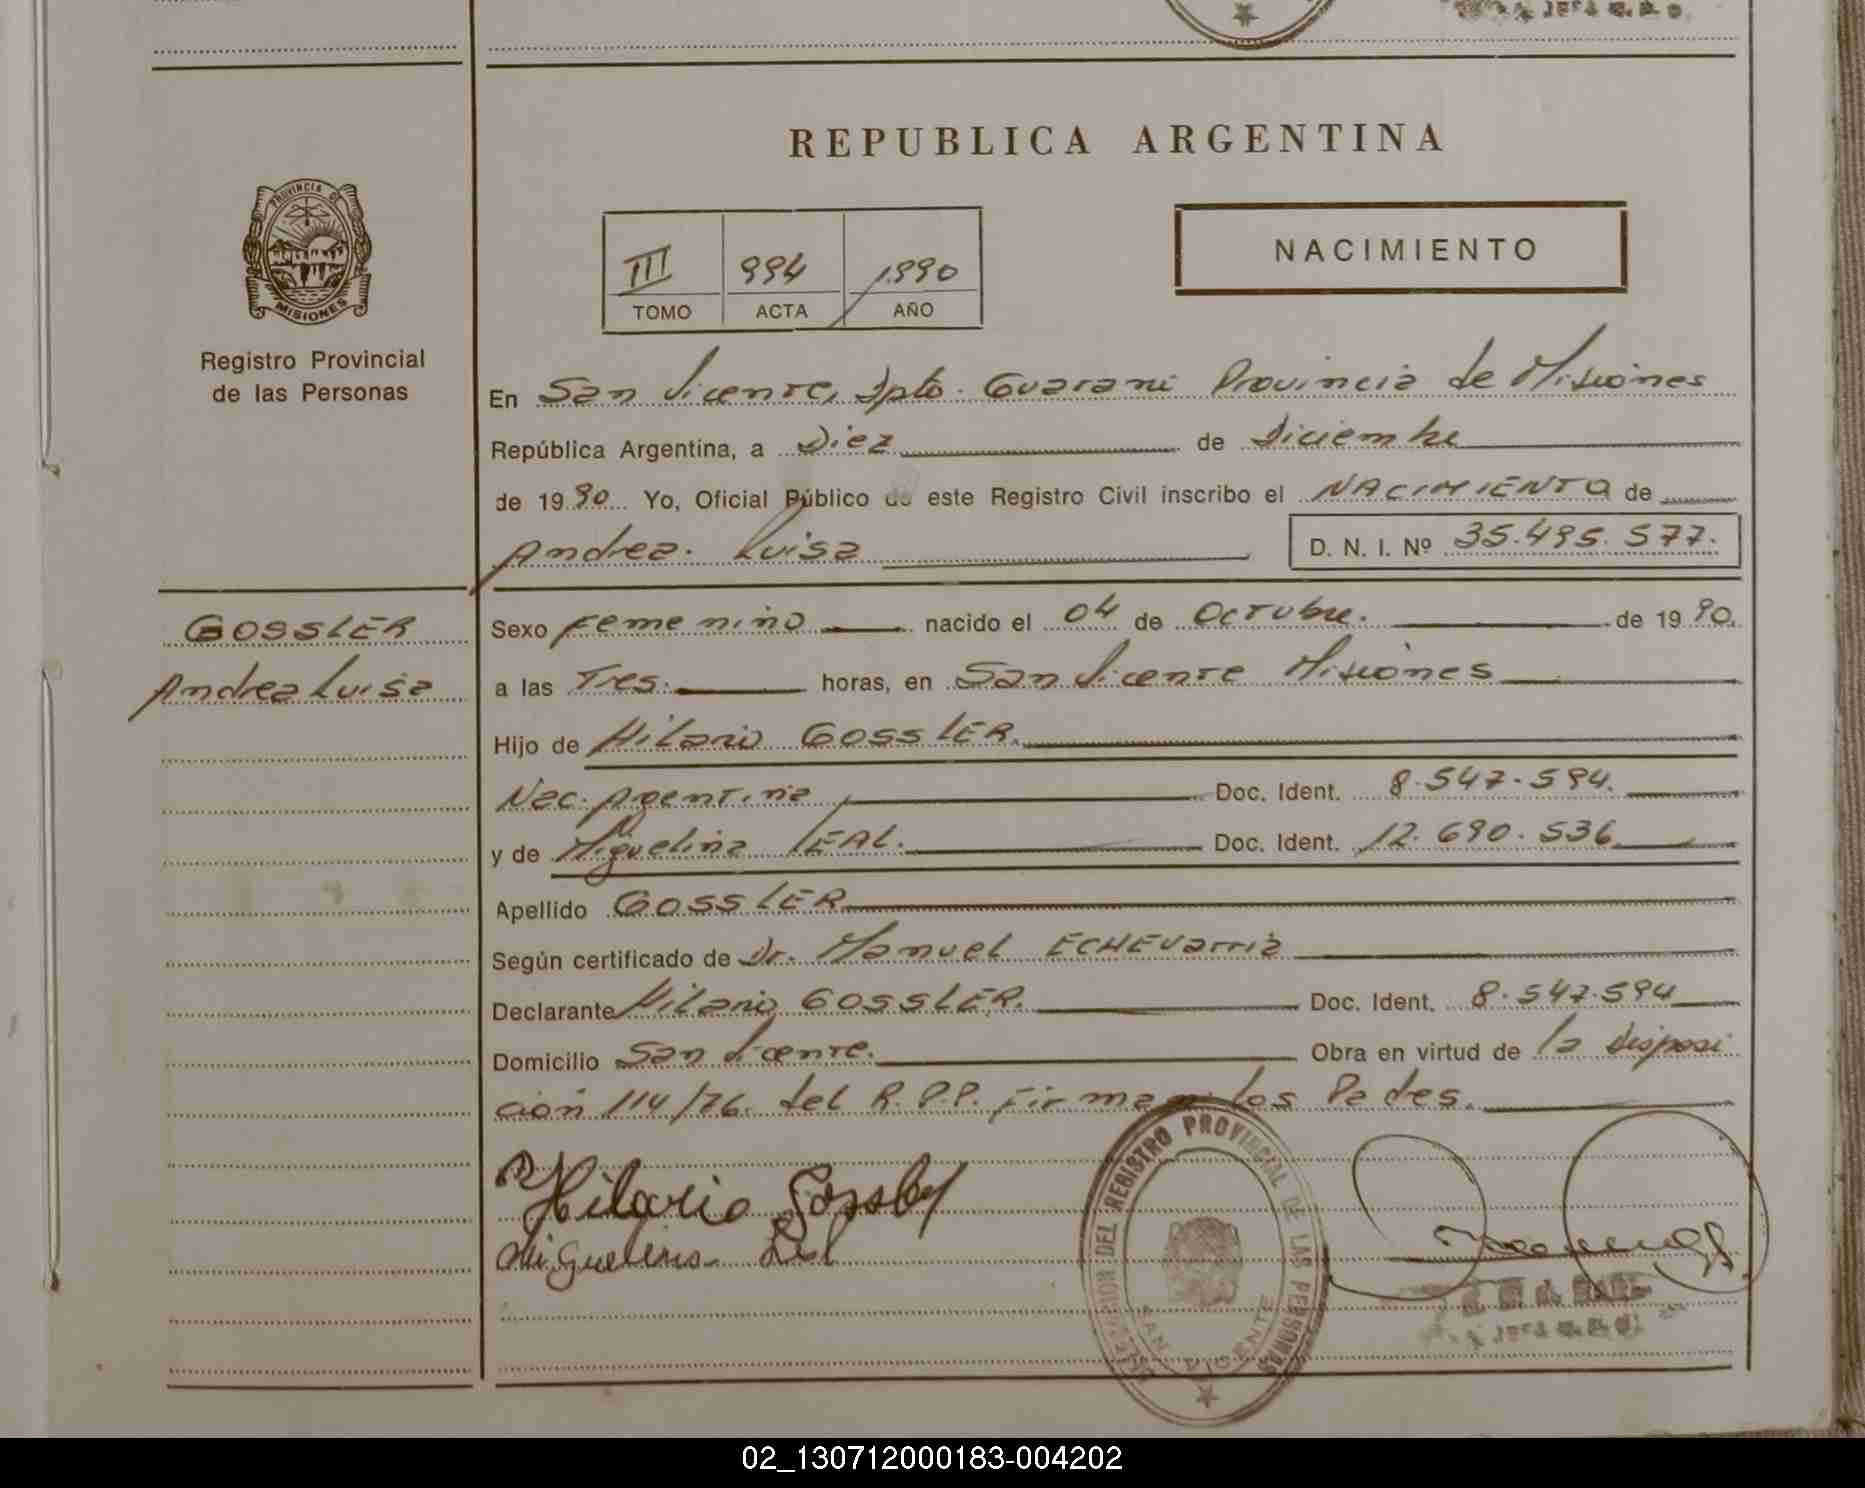 REPUBLICA ARGENTINA
PROVINCIA DE
MISIONES
Registro Provincial
de las Personas
III 994 1990
TOMO ACTA AÑO
NACIMIENTO
En San Vicente, Dpto. Guarani Provincia de Misiones
República Argentina, a Diez de Diciembre
de 1990 Yo, Oficial Público de este Registro Civil inscribo el NACIMIENTO de
Andrea. Luisa D. N. I. Nº 35.495.577.
GOSSLER
Andrea Luisa
Sexo Femenino nacido el 04 de Octubre. de 1990.
a las Tres. horas, en San Vicente Misiones
Hijo de Hilario GOSSLER.
Nac. Agentina Doc. Ident. 8.547.594.
y de Miguelina LEAL. Doc. Ident. 12.690.536
Apellido GOSSLER
Según certificado de Dr. Manuel ECHEVarria
Declarante Hilario GOSSLER. Doc. Ident. 8.547.594
Domicilio San Vicente. Obra en virtud de la Disposi
ción 114/76. del R.P.P. Firman los Pades.
Hilario Gossler
Miguelina Leal
DELEGACION DEL REGISTRO PROVINCIAL DE LAS PERSONAS
SAN VICENTE
02_130712000183-004202